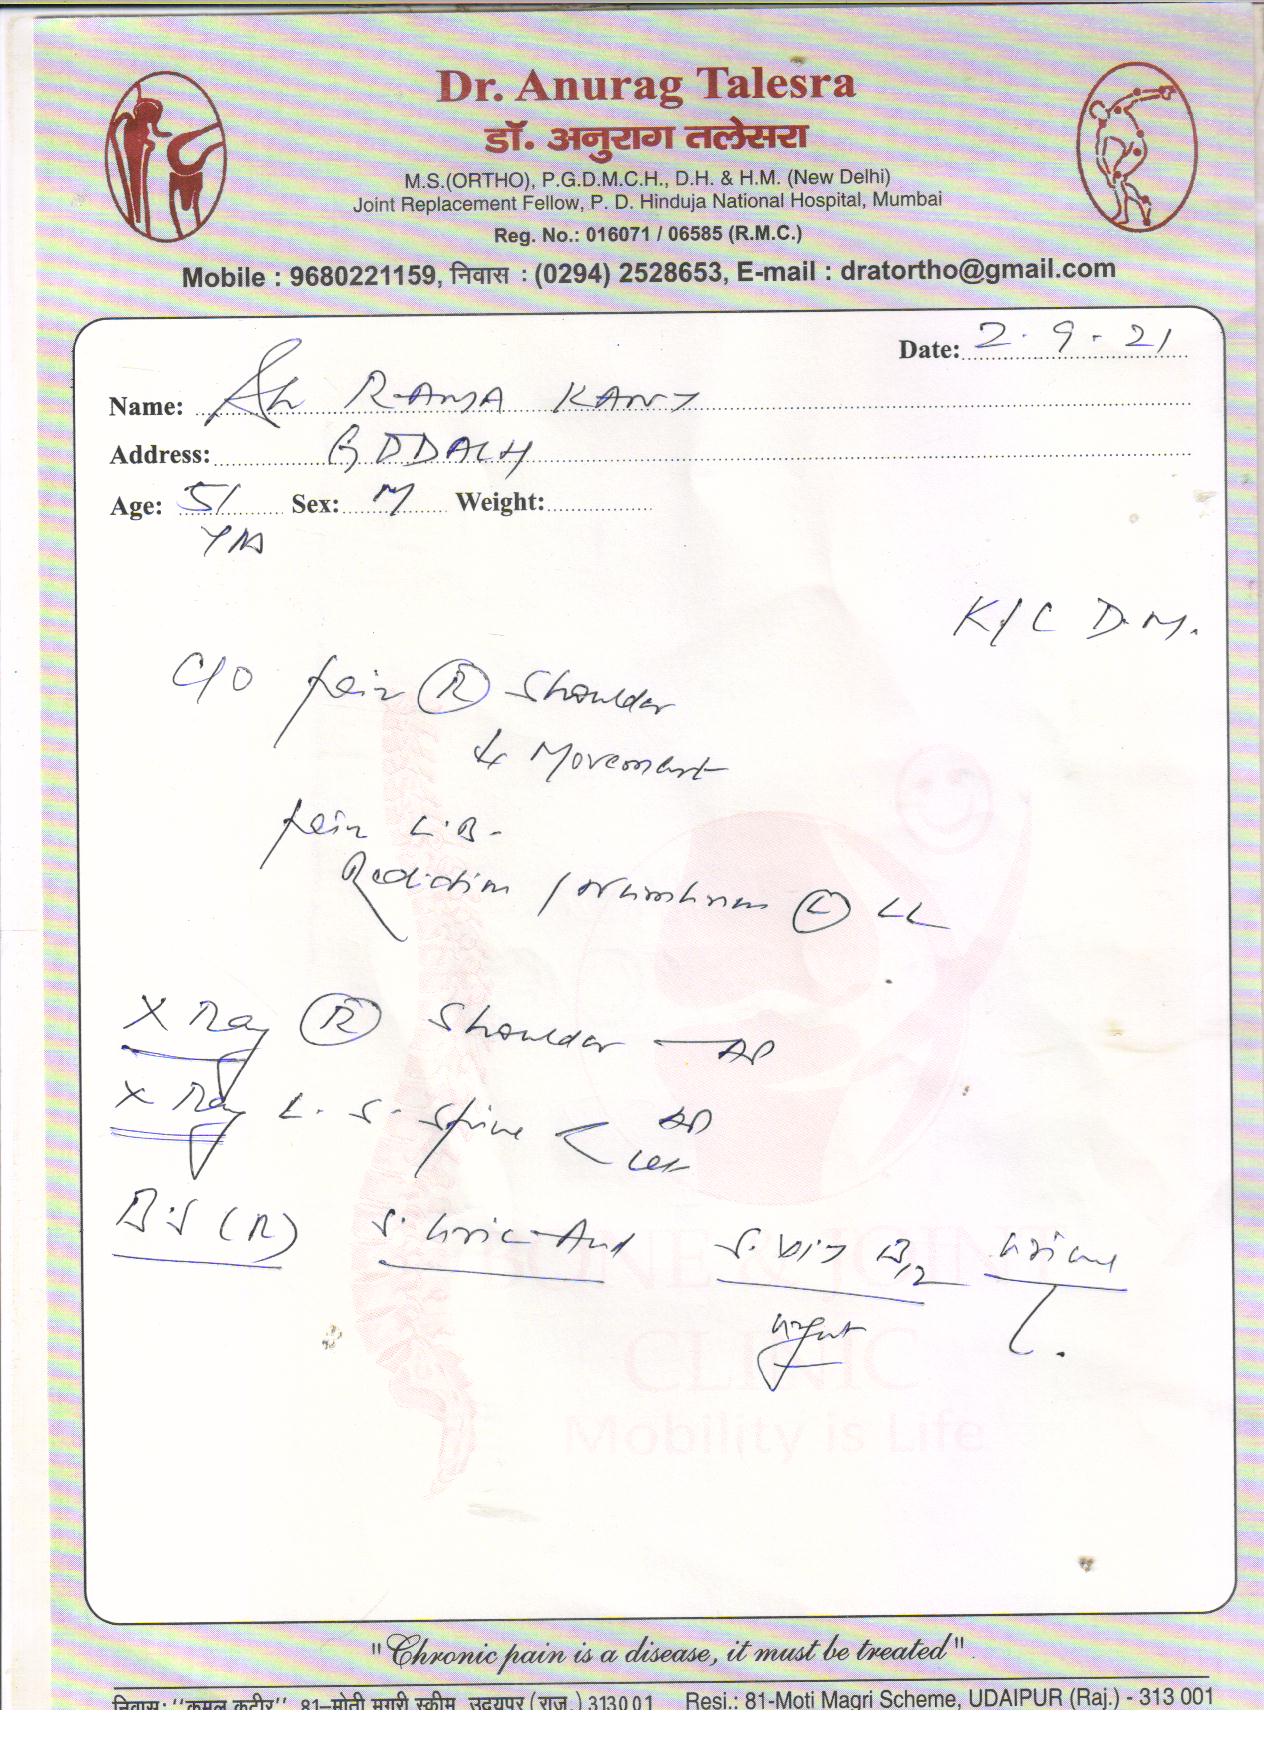 Dr. Anurag Talesra
डॉ. अनुराग तलेसरा
M.S.(ORTHO), P.G.D.M.C.H., D.H. & H.M. (New Delhi)
Joint Replacement Fellow, P. D. Hinduja National Hospital, Mumbai
Reg. No.: 016071 / 06585 (R.M.C.)
Mobile : 9680221159, निवास : (0294) 2528653, E-mail : dratortho@gmail.com
Date: 2.9.21
Name: Sh RAMA KANT
Address:
Age: 51 Sex: M Weight:
YRS
K/C D.M.
C/O Pain (R) Shoulder
Movement
Pain L.B.
Radiation / Numbness (L) LL
X Ray (R) Shoulder — AP
X Ray L. S. Spine < AP
Lat
B.S (R) S. Uric Acid S. Vit B12 Urine
Urgent
CLINIC
Mobility is Life
"Chronic pain is a disease, it must be treated"
निवास: "कमल कुटीर" 81–मोती मगरी स्कीम, उदयपुर (राज.) 313001 Resi.: 81-Moti Magri Scheme, UDAIPUR (Raj.) - 313 001